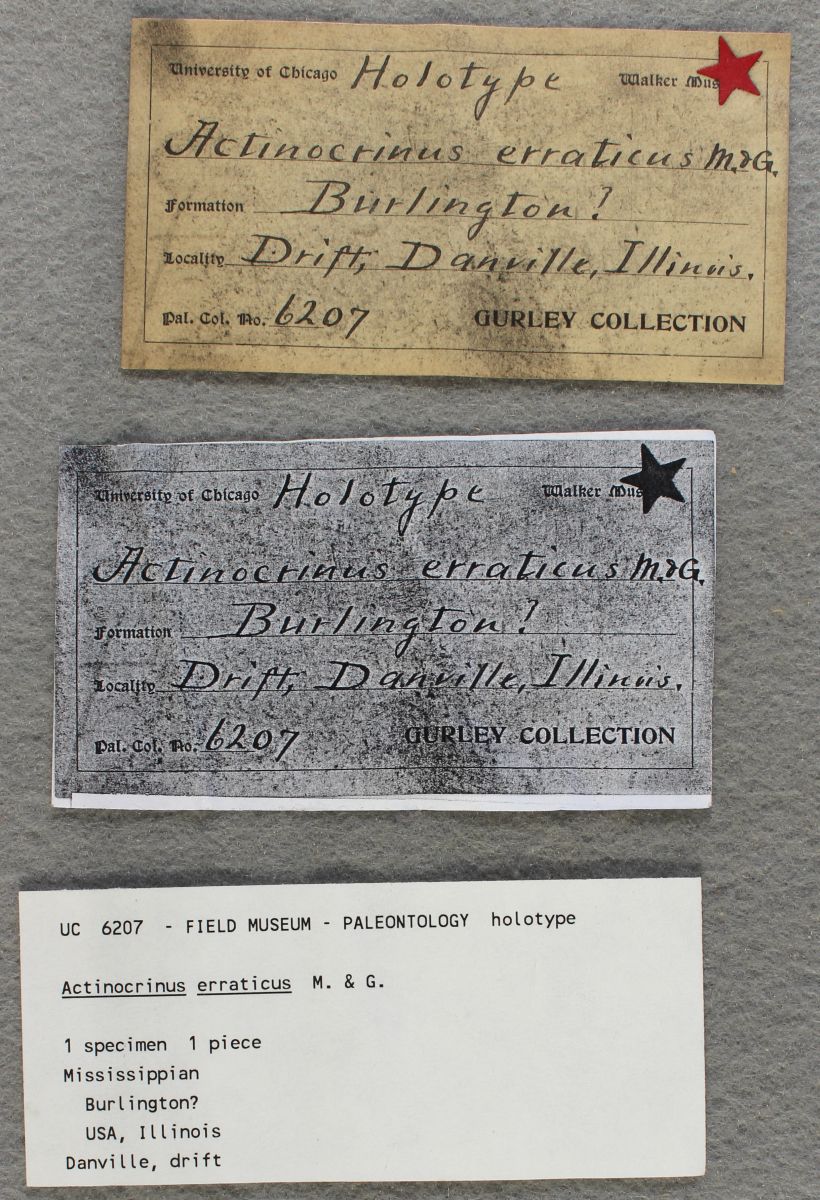 University of Chicago Holotype Walker Mus
Actinocrinus erraticus M. & G.
Formation Burlington?
Locality Drift, Danville, Illinois.
Pal. Col. No. 6207 GURLEY COLLECTION
University of Chicago Holotype Walker Mus
Actinocrinus erraticus M. & G.
Formation Burlington?
Locality Drift, Danville, Illinois.
Pal. Col. No. 6207 GURLEY COLLECTION
UC 6207 - FIELD MUSEUM - PALEONTOLOGY holotype
Actinocrinus erraticus M. & G.
1 specimen 1 piece
Mississippian
Burlington?
USA, Illinois
Danville, drift